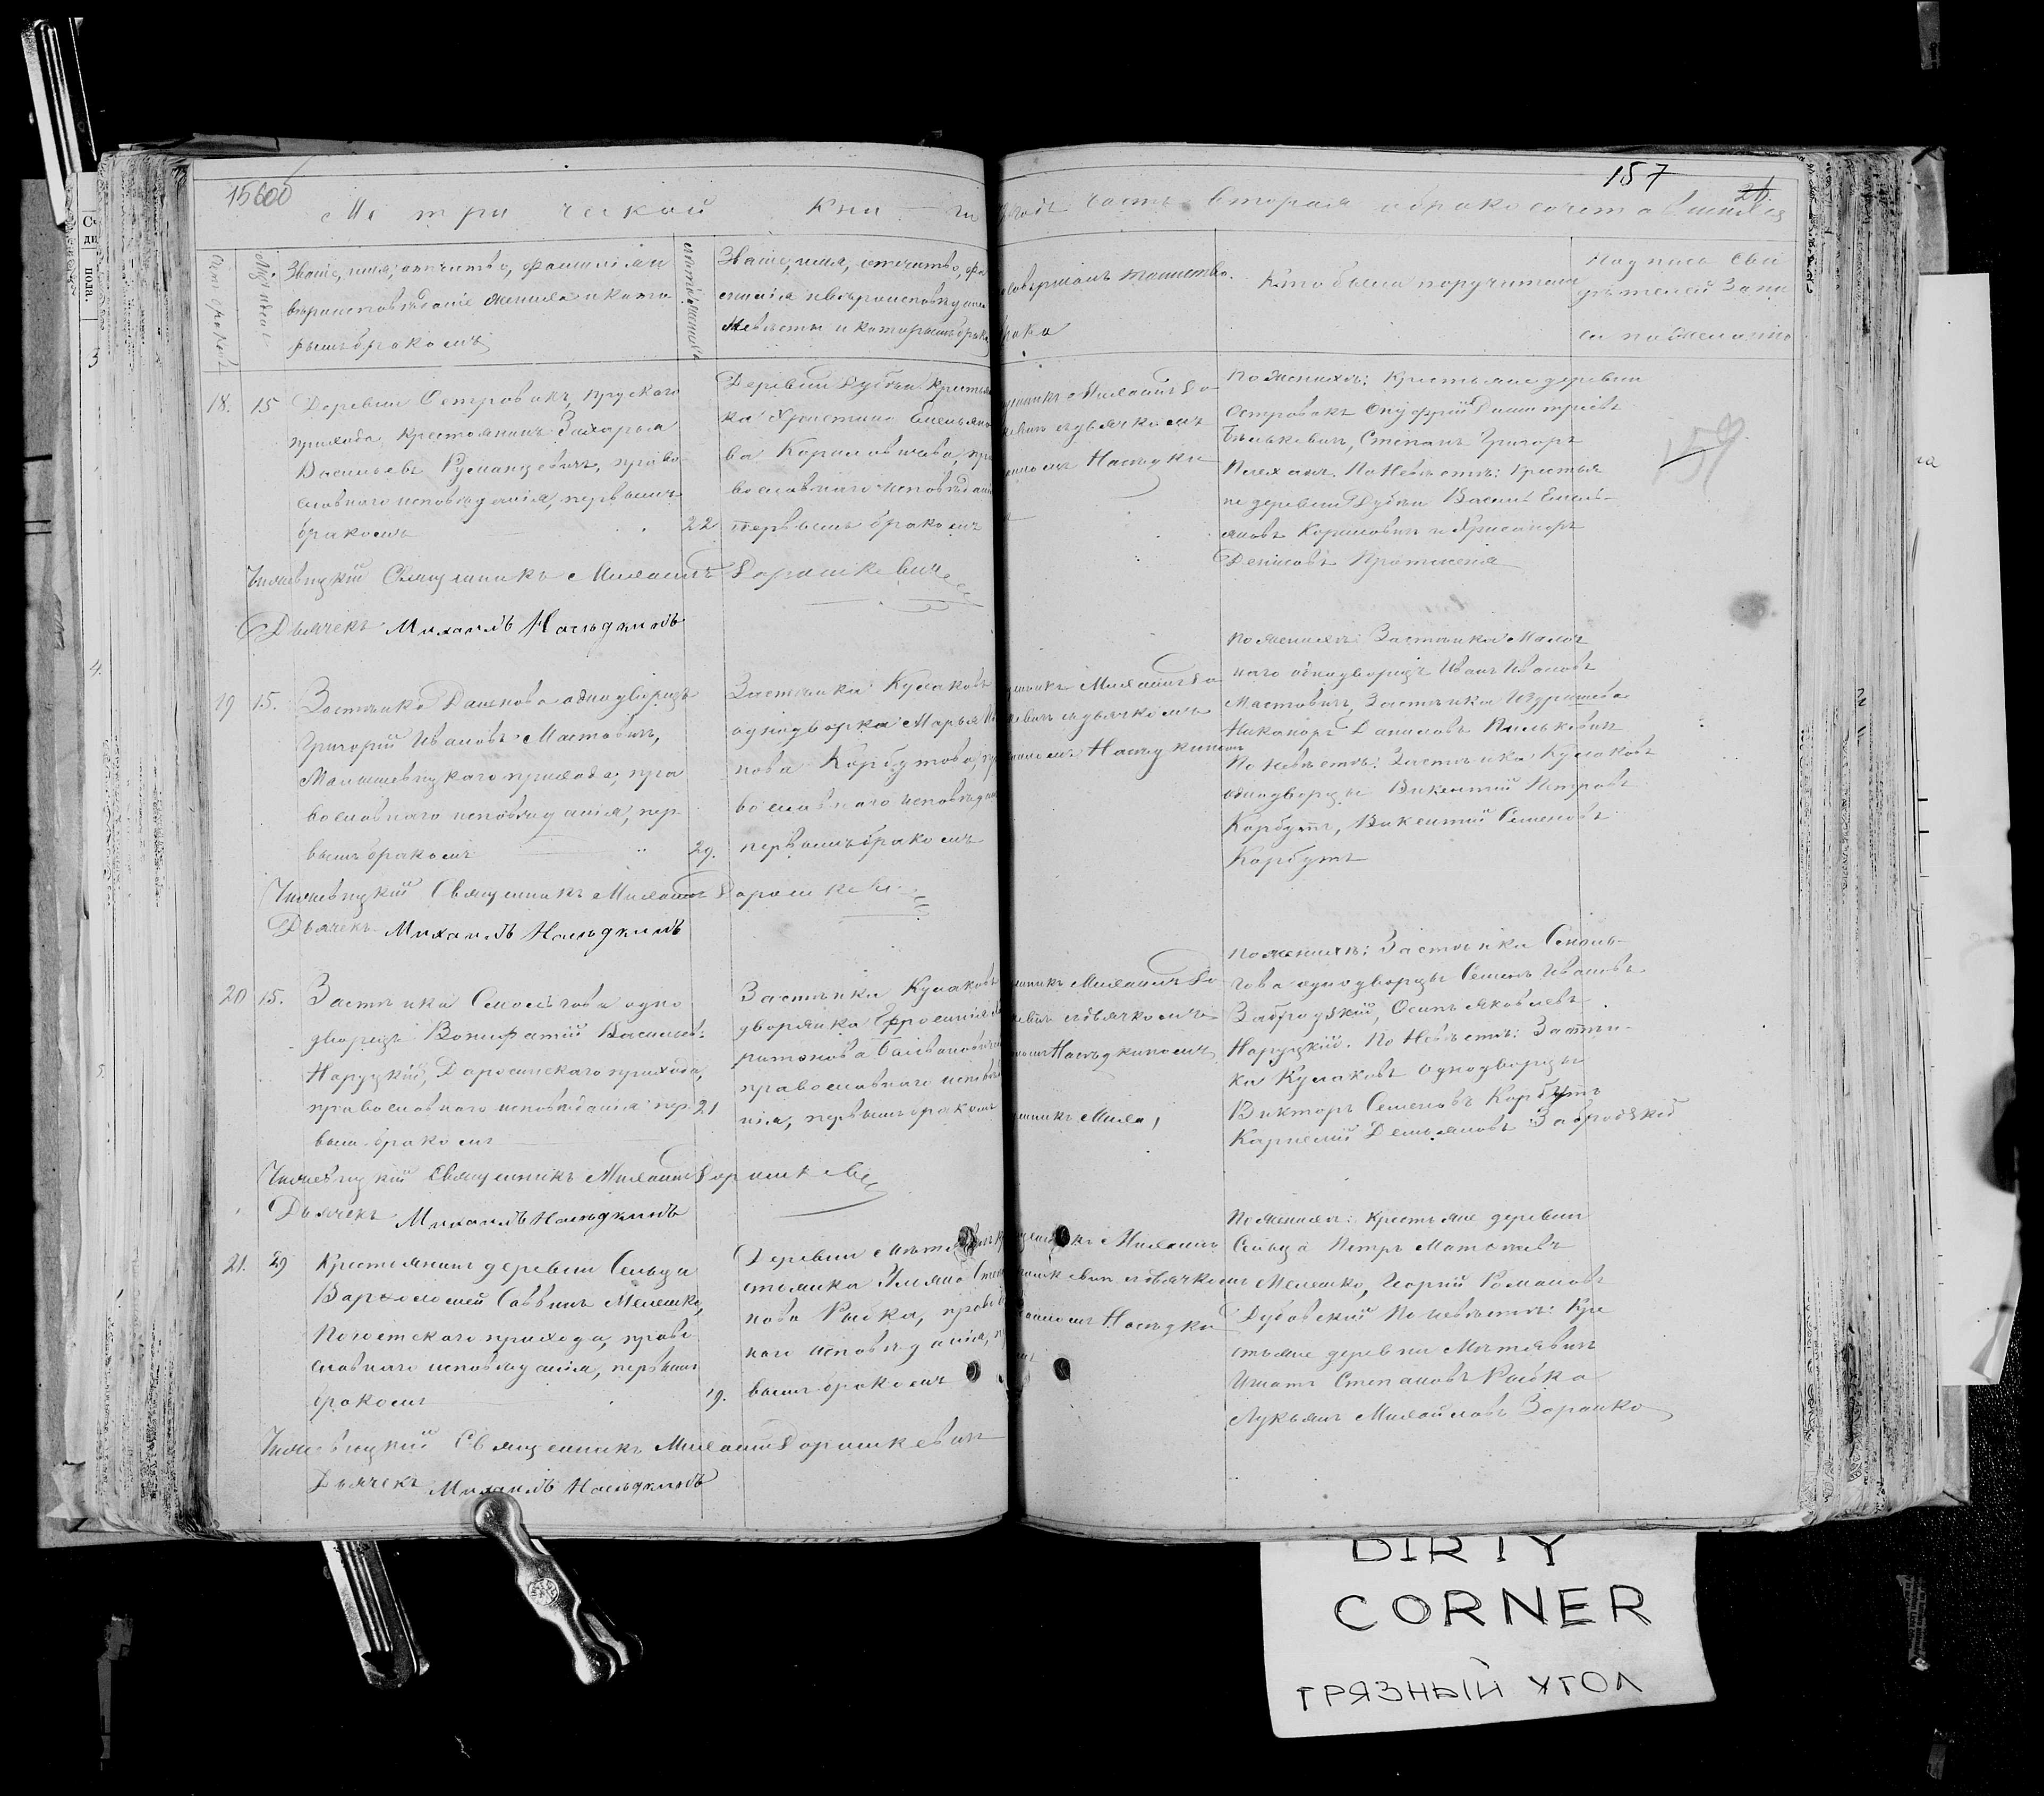 15600
157
26.
Метрической книги
часть вторая о бракосочетавшихся
Счетъ браковъ
Званіе, имя, отчество, фамилія и
вѣроисповѣданіе жениха и кото
рымъ бракомъ
Званіе, имя, отчество, фа
милія и вѣроисповѣданіе
Невѣсты и которымъ бракомъ
совершалъ таинство
брака
Кто были поручители
Подпись сви
дѣтелей запи
си по желанію
18. 15 Деревни Островокъ, Прускаго
прихода, крестьянинъ Захарья
Васильевъ Румянцевичъ, право
славнаго исповѣданія, первымъ
бракомъ
22
Деревни Дубеи крестьян
ка Христина Емельяно
ва Каришовтова, пра
вославнаго исповѣдані
первымъ бракомъ
щенникъ Михаилъ До
кевичъ съ дьячкомъ
Насѣдки
По женихѣ: Крестьяне деревни
Островокъ Онуфрій Димитріевъ
Бѣлькевичъ, Степанъ Григорь
По Невѣстѣ: Крестья
не деревни Дубеи Василь Емель-
яновъ
Денисовъ
159
Священникъ Михаилъ Дорашкевичъ
Дьячекъ Михаилъ Насѣдкинъ
19 15. Застѣнка Даленова однодворецъ
Григорій Ивановъ Мастовичъ,
прихода, пра
вославнаго исповѣданія, пер-
вымъ бракомъ
29.
Застѣнка Кулаковъ
однодворка Марья
нова Корбутова, пр
вославнаго исповѣдан
первымъ бракомъ
щенникъ Михаилъ До
кевичъ съ дьячкомъ
Насѣдкинымъ
По женихѣ: Застѣнка
наго однодворецъ Иванъ Ивановъ
Мастовичъ, Застѣнка
Никаноръ Даниловъ
По невѣстѣ: Застѣнка Кулаковъ
однодворцы Викентій Петровъ
Корбутъ, Викентій Семеновъ
Корбутъ
Священникъ Михаилъ Дорашкевичъ
Дьячекъ Михаилъ Насѣдкинъ
20 15. Застѣнка Смольгова одно
дворецъ Вонифатій Васильевъ
Наруцкій, Даросинскаго прихода,
православнаго исповѣданія пер-
вымъ бракомъ
21
Застѣнки Кулаковъ
дворянка Ефросинія
православнаго исповѣд
нія, первымъ бракомъ
щенникъ Михаилъ До
кевичъ съ дьячкомъ
Насѣдкиномъ
щенникъ Миха,
По женихѣ: Застѣнка Смоль-
гова однодворцы Семенъ Ивановъ
Забродзкій, Осипъ Яковлевъ
Наруцкій. По Невѣстѣ: Застѣн-
ки Кулаковъ однодворцы
Викторъ Семеновъ Корбутъ
Карнелій Демьяновъ Забродзкой
Священникъ Михаилъ Дорашкевичъ
Дьячекъ Михаилъ Насѣдкинъ
21. 29 Крестьянинъ деревни Сельца
Вархоломей Саввинъ Мелешко,
Погостскаго прихода, право
славнаго исповѣданія, первымъ
бракомъ
19.
Деревни
стьянка Ульяна Степа
нова Рыбка, правосл
наго исповѣданія, пер
вымъ бракомъ
щенникъ Михаилъ
рашкевичъ съ дьячкомъ
Насѣдки
По женихѣ: Крестьяне деревни
Сельца Петръ Матвеевъ
Мелешко, Георгій Романовъ
Дубовскій По невѣстѣ: Кре
стьяне деревни
Игнатъ Степановъ Рыбка
Лукьянъ Михайловъ Заранко
Священникъ Михаилъ Дорашкевичъ
Дьячекъ Михаилъ Насѣдкинъ
DIRTY
CORNER
ГРЯЗНЫЙ УГОЛ